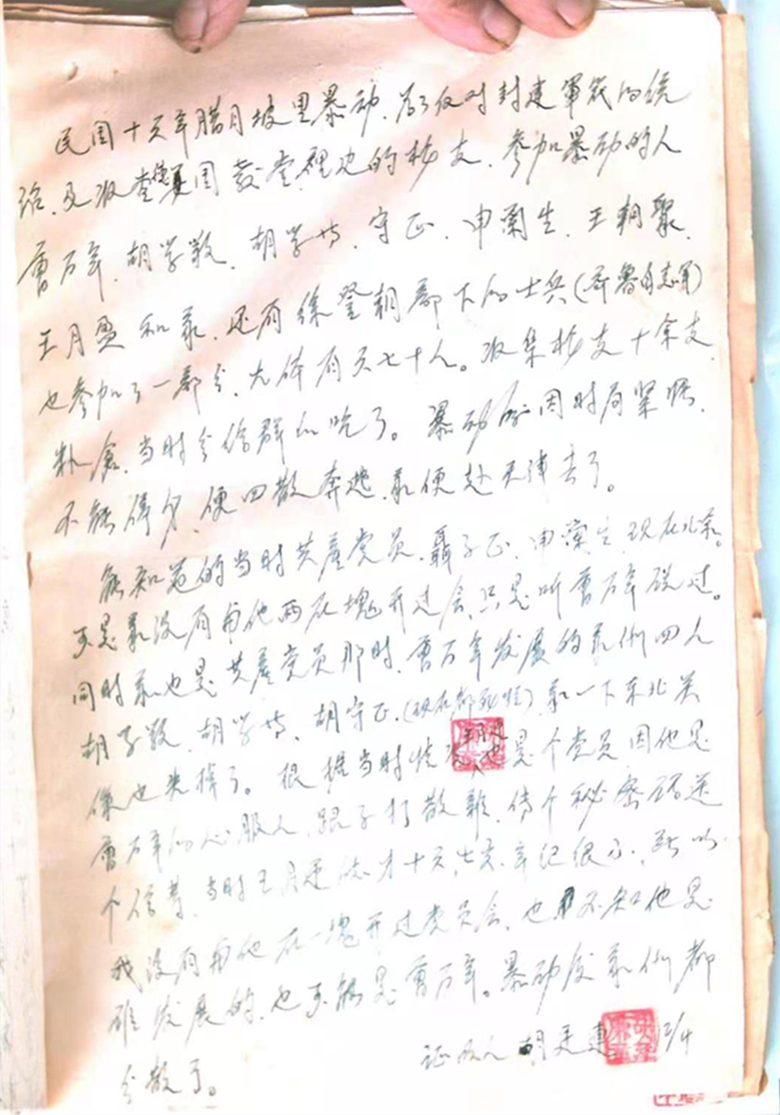 民国十六年腊月坡里暴动,为了反对封建军筏的统
治,及收查德国教堂裡边的枪支,参加暴动的人
曹万年,胡学敬,胡学芳,守正,申兰生,王朝聚,
王月盈和我,还有徐登朝部下的士兵(齐鲁自志军)
也参加了一部分,大体有六七十人。收集枪支十余支,
粮食,当时分给群众吃了。暴动后因时局紧张,
不能停身,便四散奔逃,我便赴天津去了。
能知道的当时共产党员,聶子正,申兰生,现在北京。
可是我没有和他两在塊开过会,只是听曹万年说过。
同时我也是共产党员那时,曹万年发展的我们四人
胡学敬,胡学芳,胡守正,(现在都死啦)我一下东北关
係也失掉了。根据当时情况月廷也是个党员,因他是
曹万年的心服人,跟了打散雜,传个秘密跑送
个信等,当时王月廷才十六,七岁,年记很小,所以
我没有和他在一塊开过党员会,也不知他是
谁发展的,也可能是曹万年。暴动后我们都
分散了。
证明人 胡廷連 12/4